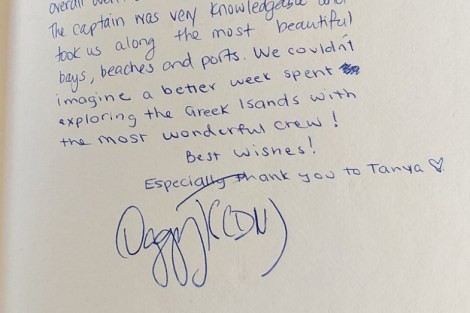 overall
The captain was very knowledgeable and
took us along the most beautiful
bays, beaches and ports. We couldn't
imagine a better week spent
exploring the Greek Isands with
the most wonderful crew!
Best wishes!
Especially thank you to Tanya ♡
(CDN)